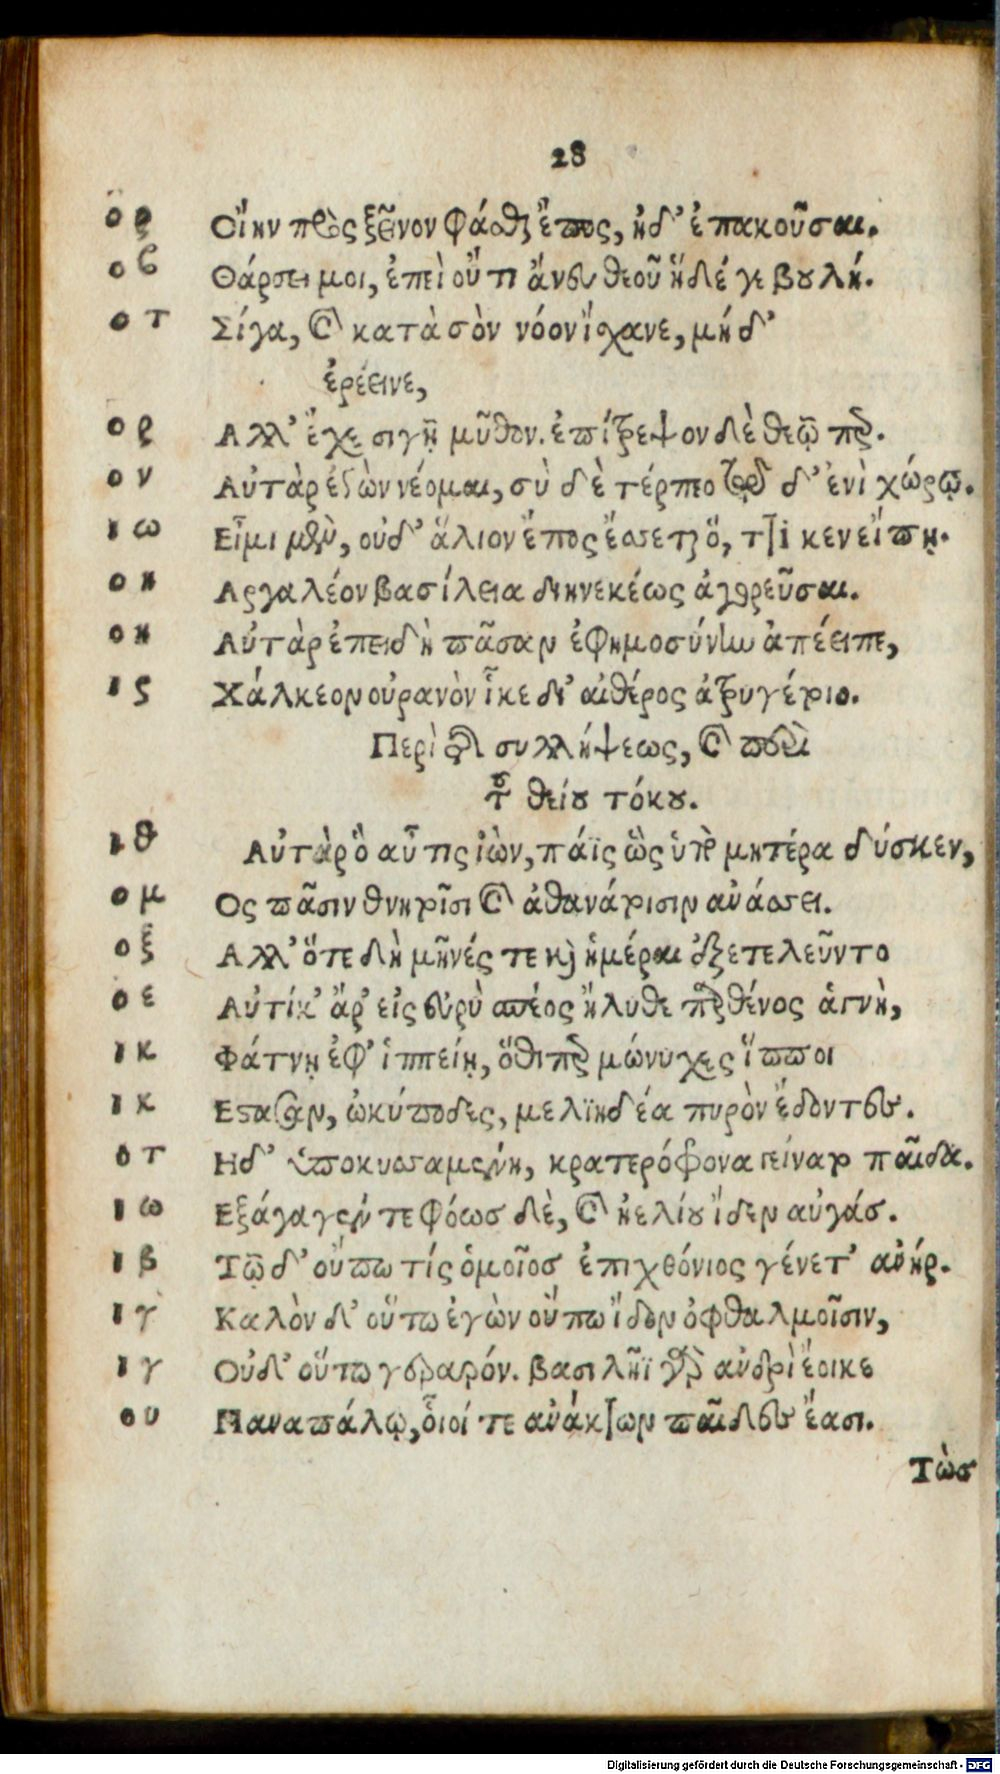 28
ο ρ Οἴην πρὸς ξεῖνον φάσθαι ἔπος, ἠδ' ἐπακοῦσαι.
ο β Θάρσει μοι, ἐπεὶ οὔτι ἄνευ θεοῦ ἥδέ γε βουλή.
ο τ Σίγα, καὶ κατὰ σὸν νόον ἴχανε, μήδ'
ἐρέεινε,
ο ρ Αλλ' ἔχε σιγῇ μῦθον. ἐπίτρεψον δὲ θεῷ περ.
ο ν Αὐτὰρ ἐγὼν νέομαι, σὺ δὲ τέρπεο τῷδ' ἐνὶ χώρῳ.
ι ω Εἶμι μὲν, οὐδ' ἅλιον ἔπος ἔσσεται ὅ, ττι κεν εἴπῃ.
ο η Αργαλέον βασίλεια διηνεκέως ἀγορεῦσαι.
ο η Αὐτὰρ ἐπειδὴ πᾶσαν ἐφημοσύνην ἀπέειπε,
ι ς Χάλκεον οὐρανὸν ἷκε δι' αἰθέρος ἀτρυγέτοιο.
Περὶ τῆς συλλήψεως, καὶ περὶ
τοῦ θείου τόκου.
ι θ Αὐτὰρ ὃ αὖτις ἰὼν, πάϊς ὣς ὑπὸ μητέρα δύσκεν,
ο μ Ος πᾶσιν θνητοῖσι καὶ ἀθανάτοισιν ἀνάσσει.
ο ξ Αλλ' ὅτε δὴ μῆνές τε καὶ ἡμέραι ἐξετελεῦντο
ο ε Αὐτίκ' ἄρ' εἰς εὐρὺ σπέος ἤλυθε παρθένος ἁγνὴ,
ι κ Φάτνῃ ἐφ' ἱππείῃ, ὅθι περ μώνυχες ἵπποι
ι κ Εστασαν, ὠκύποδες, μελϊηδέα πυρὸν ἔδοντες.
ο τ Ηδ' ὑποκυσσαμένη, κρατερόφρονα γείνατο παῖδα.
ι ω Εξάγαγέν τε φόωσ δὲ, καὶ ἠελίου ἴδεν αὐγάσ.
ι β Τῷ δ' οὔπω τίς ὁμοῖοσ ἐπιχθόνιος γένετ' ἀνήρ.
ι γ Καλὸν δ' οὕτω ἐγὼν οὔπω ἴδον ὀφθαλμοῖσιν,
ι γ Οὐδ' οὕτω γεραρόν. βασιλῆϊ γὰρ ἀνδρὶ ἔοικε
ο υ Παναπάλῳ, οἷοί τε ἀνάκτων παῖδες ἔασι.
Τὼσ
Digitalisierung gefördert durch die Deutsche Forschungsgemeinschaft - DFG